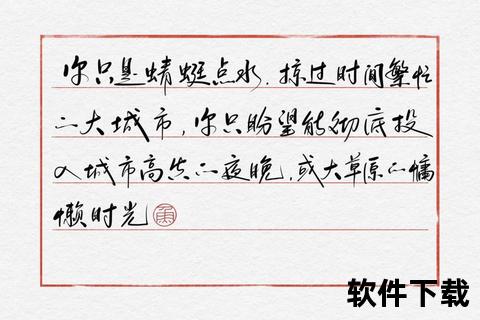 你只是蜻蜓点水，掠过时间繁忙
的大城市，你只盼望能彻底投
入城市高尚的夜晚，或大草原的慵
懒时光
软件下载